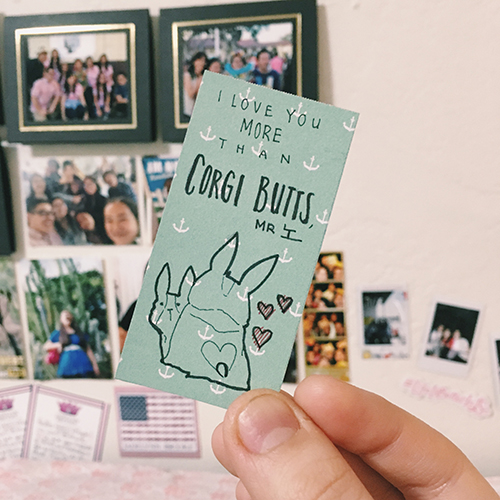 I LOVE YOU
MORE
THAN
CORGI BUTTS,
MR 노